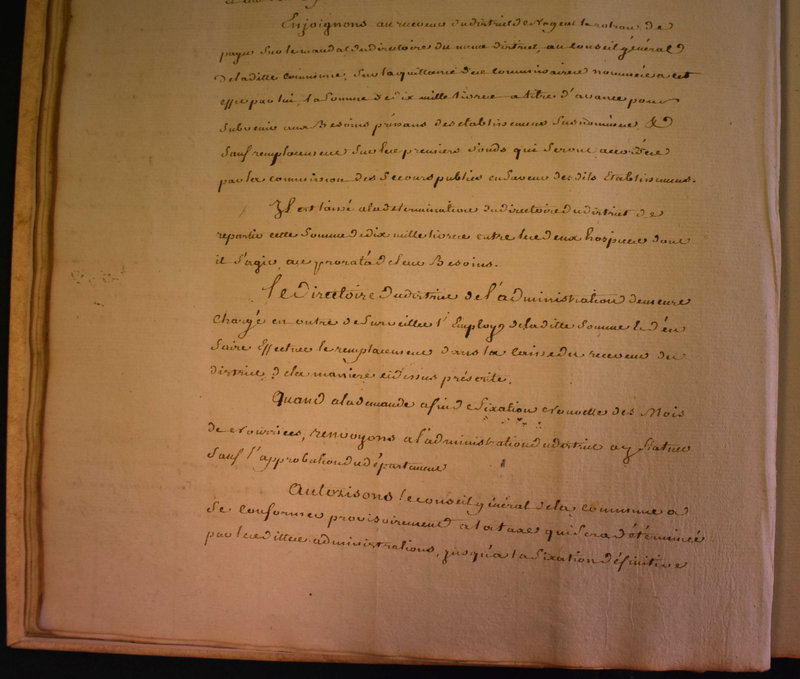 Enjoignons au receveur du district de Nogent le rotrou de
payer sur le mandat du directoire du meme district, au Conseil général
de la ditte Commune, sur la quittance des Commissaires nommés a cet
effet par lui, la somme de dix mille livres a titre d'avance pour
subvenir aux Besoins préssans des etablissemens susnommés, &
sauf remplacement sur les premiers fonds qui seront accordés
par la commission des secours publics en faveur des dits Etablissemens.
Il est laissé a la determination du directoire du district de
repartir cette somme de dix mille livres entre les deux hospices dont
il s'agit, au prorata de leurs Besoins.
Le Directoire du district de l'administration demeure
Chargé en outre de surveiller l'Employ de la ditte somme et d'en
faire Effectuer le remplacement dans la caisse du receveur du
district, de la manière cidessus préscrite.
Quand a la demande afin de fixation nouvelle des Mois
de nourrices, renvoyons a l'administration du district a y statuer
sauf l'approbation du département
Autorisons le conseil général de la commune a
se conformer provisoirement a la taxe qui sera déterminée
par les dittes administrations, jusqu'a la fixation définitive